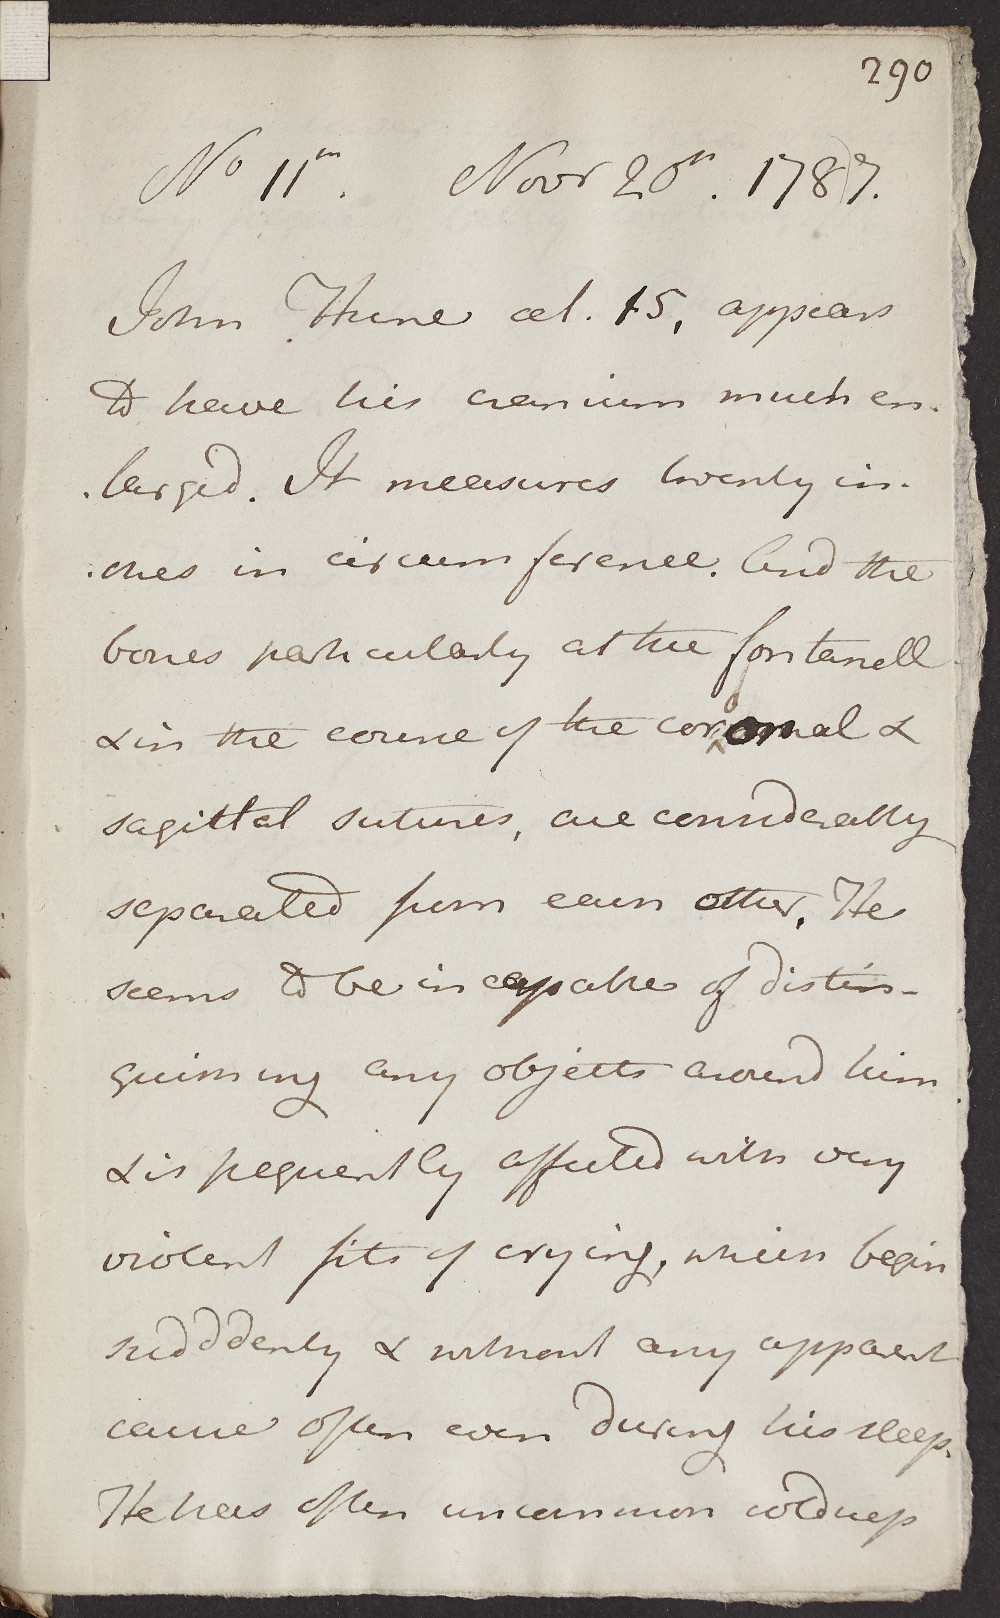 290
No 11m. Novr 20th. 1787.
John Hune æt. 15, appears
to have his cranium much en-
-larged. It measures twenty in-
-ches in circumference. And the
bones particularly at the fontanell
& in the course of the coronal &
sagittal sutures, are considerably
separated from each other. He
seems to be incapable of distin-
guishing any objects around him
& is frequently affected with very
violent fits of crying, which begin
sudddenly & without any apparent
cause often even during his sleep.
He has often uncommon coldness